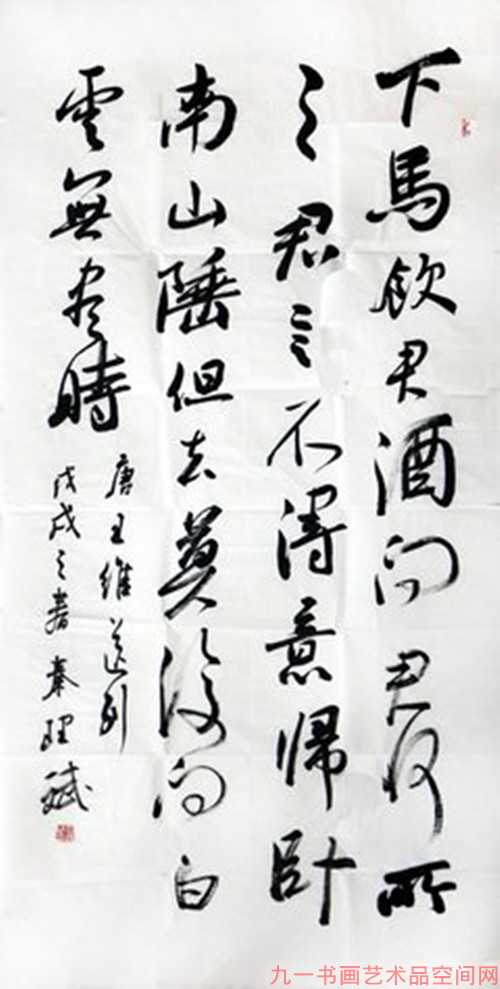 下馬飲君酒问君何所
之君言不得意歸卧
南山陲但去莫復问白
雲無尽時
唐王維送别
戊戌之春秦理斌
九一书画艺术品空间网